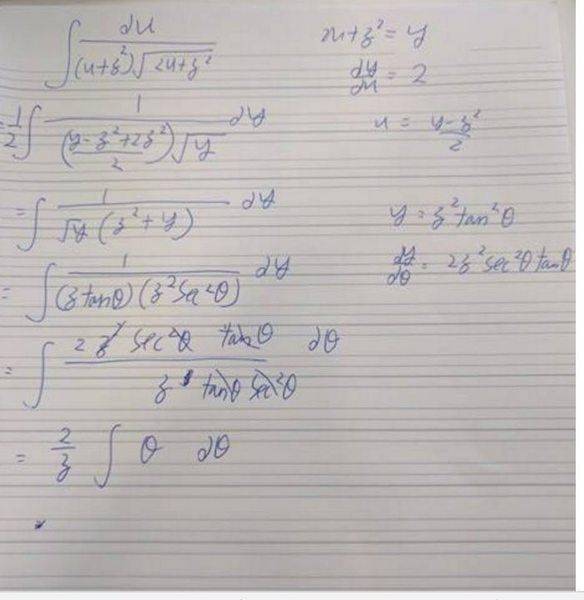 ∫ du / ((u+z²)√(2u+z²))
2u+z² = y
dy/du = 2
u = (y-z²)/2
= 1/2 ∫ 1 / (((y-z²+2z²)/2)√y) dy
= ∫ 1 / (√y (z²+y)) dy
y = z²tan²θ
dy/dθ = 2z²sec²θ tanθ
= ∫ 1 / ((z tanθ)(z²sec²θ)) dy
= ∫ 2z² sec²θ tanθ / (z³ tanθ sec²θ) dθ
= 2/z ∫ θ dθ